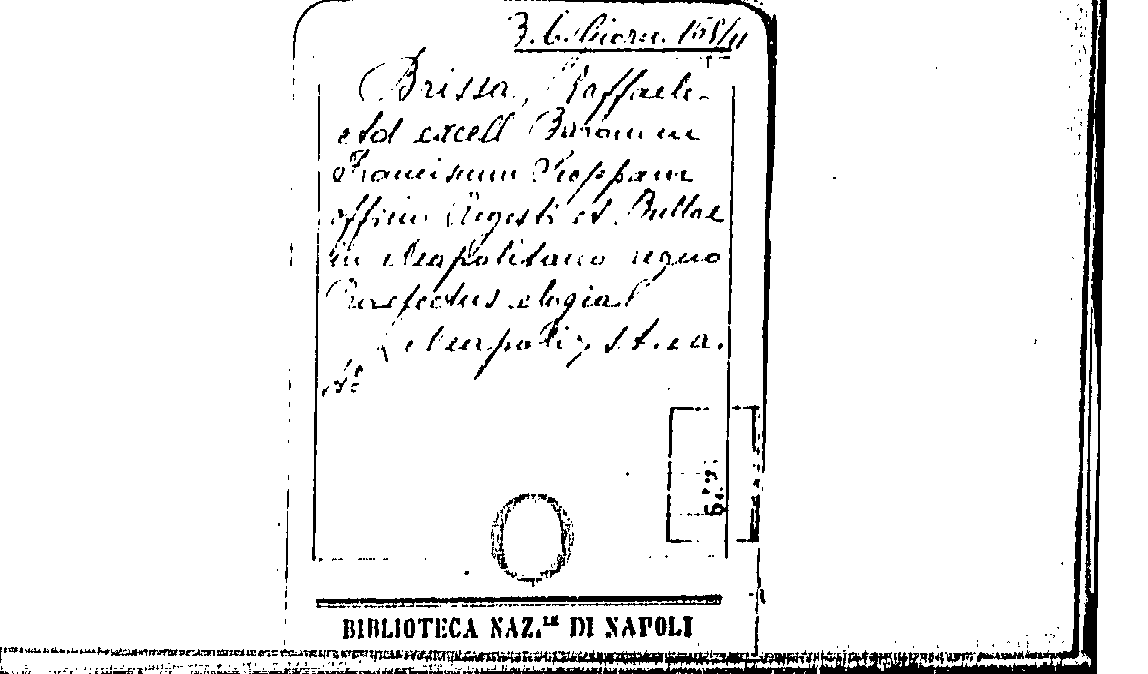 B. b. Giorn. 158/11
Brissa, Raffaele.
Ad excell Baronem
Franciscum
officii Regesti et Bullae
in Neapolitano regno
Praefectus elogia
Neapoli, s.t. ed a.
in 4º
BIBLIOTECA NAZ.LE DI NAPOLI